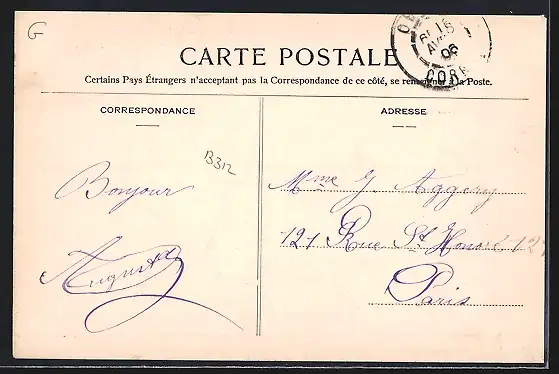 G
CARTE POSTALE
Certains Pays Étrangers n'acceptant pas la Correspondance de ce côté, se renseigner à la Poste.
CORRESPONDANCE
ADRESSE
B312
Bonjour
Mme J Aggery
121 Rue St Honoré 121
Paris